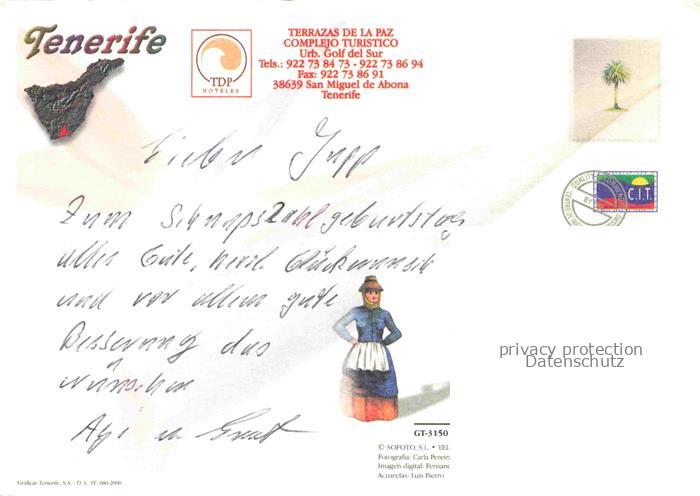 Tenerife
TDP
HOTELES
TERRAZAS DE LA PAZ
COMPLEJO TURISTICO
Urb. Golf del Sur
Tels.: 922 73 84 73 - 922 73 86 94
Fax: 922 73 86 91
38639 San Miguel de Abona
Tenerife
C.I.T.
QUALITY
BY
Lieber Jupp
Zum Schnapszahlgeburtstag
alles Gute, herzl. Glückwunsch
und vor allem gute
Besserung das
wünschen
Ernst
privacy protection
Datenschutz
GT-3150
© SOFOTO, S.L. • TEL
Fotografía: Carla Pereira
Imagen digital: Fernand
Acuarelas: Luis Fierro
Gráficas Tenerife, S.A. - D. L. TF. 680-2000